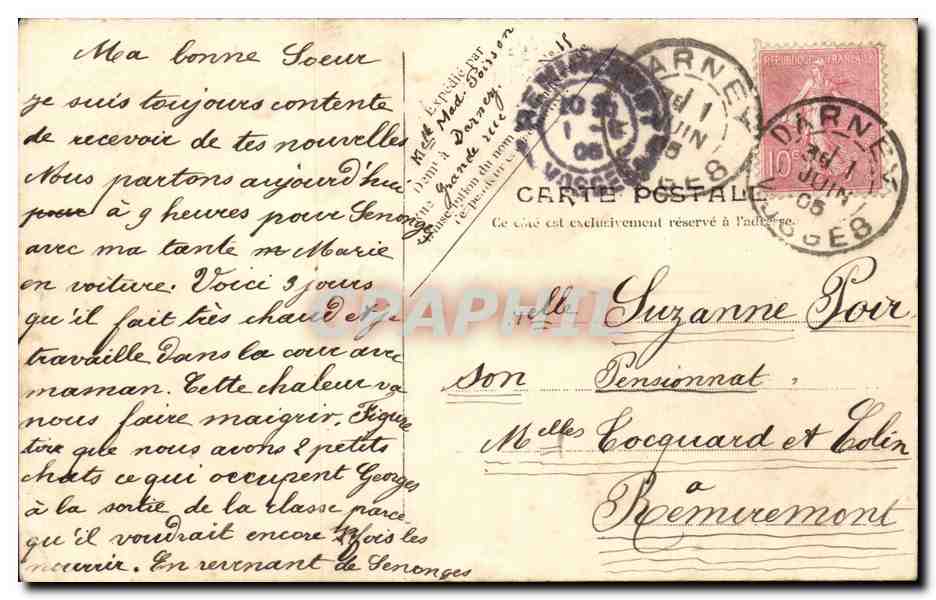 Ma bonne Soeur
je suis toujours contente
de recevoir de tes nouvelles
Nous partons aujourd'hui
pour à 9 heures pour Senonges
avec ma tante m Marie
en voiture. Voici 3 jours
qu'il fait très chaud et je
travaille dans la cour avec
maman. Cette chaleur va
nous faire maigrir. Figure
toi que nous avons 2 petits
chats ce qui occupent Georges
à la sortie de la classe parce
qu'il voudrait encore fois les
nourrir. En revenant de Senonges
Expédié par
Melle Mad. Poirson
Dem t à Darney
Grande rue
Inscription du nom
REMIREMONT
1
05
VOSGES
DARNEY
3E 1
JUIN
05
VOSGES
REPUBLIQUE FRANÇAISE
10c
DARNEY
3E 1
JUIN
05
VOSGES
CARTE POSTALE
Ce côté est exclusivement réservé à l'adresse.
Melle Suzanne Poir
son Pensionnat
Melles Cocquard et Colin
à
Remiremont
CPAPHIL